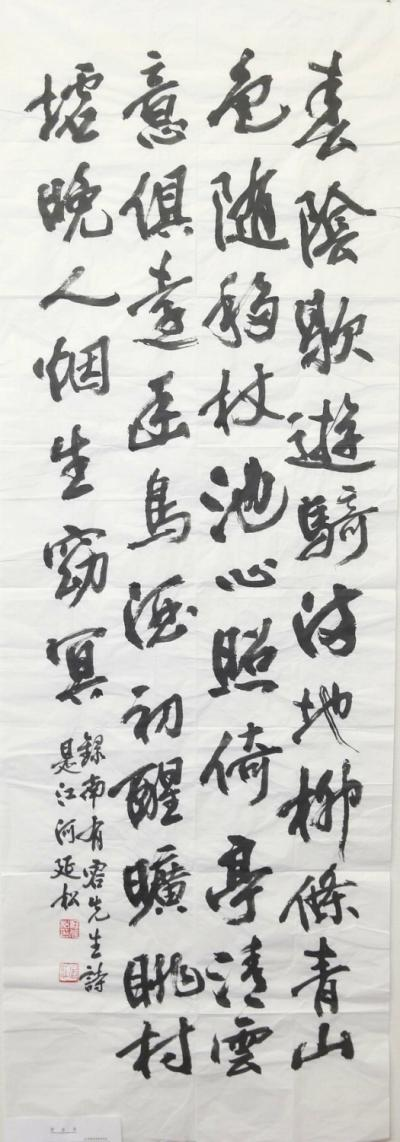 春陰歇遊騎沙地柳條青山
色隨移杖池心照倚亭清雲
意俱遠幽鳥酒初醒曠眺村
墟晚人烟生窈冥
錄南有容先生詩
是江河延松